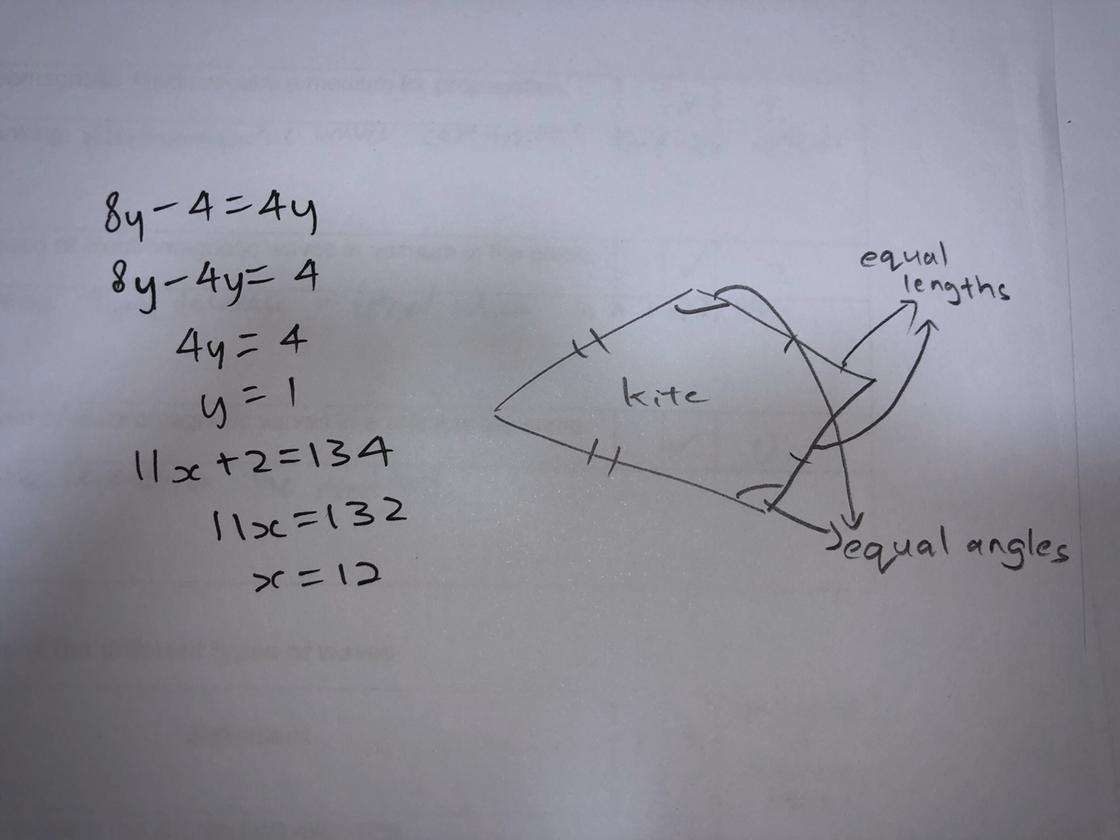 8y - 4 = 4y
8y - 4y = 4
4y = 4
y = 1
11x + 2 = 134
11x = 132
x = 12
equal
lengths
kite
equal angles